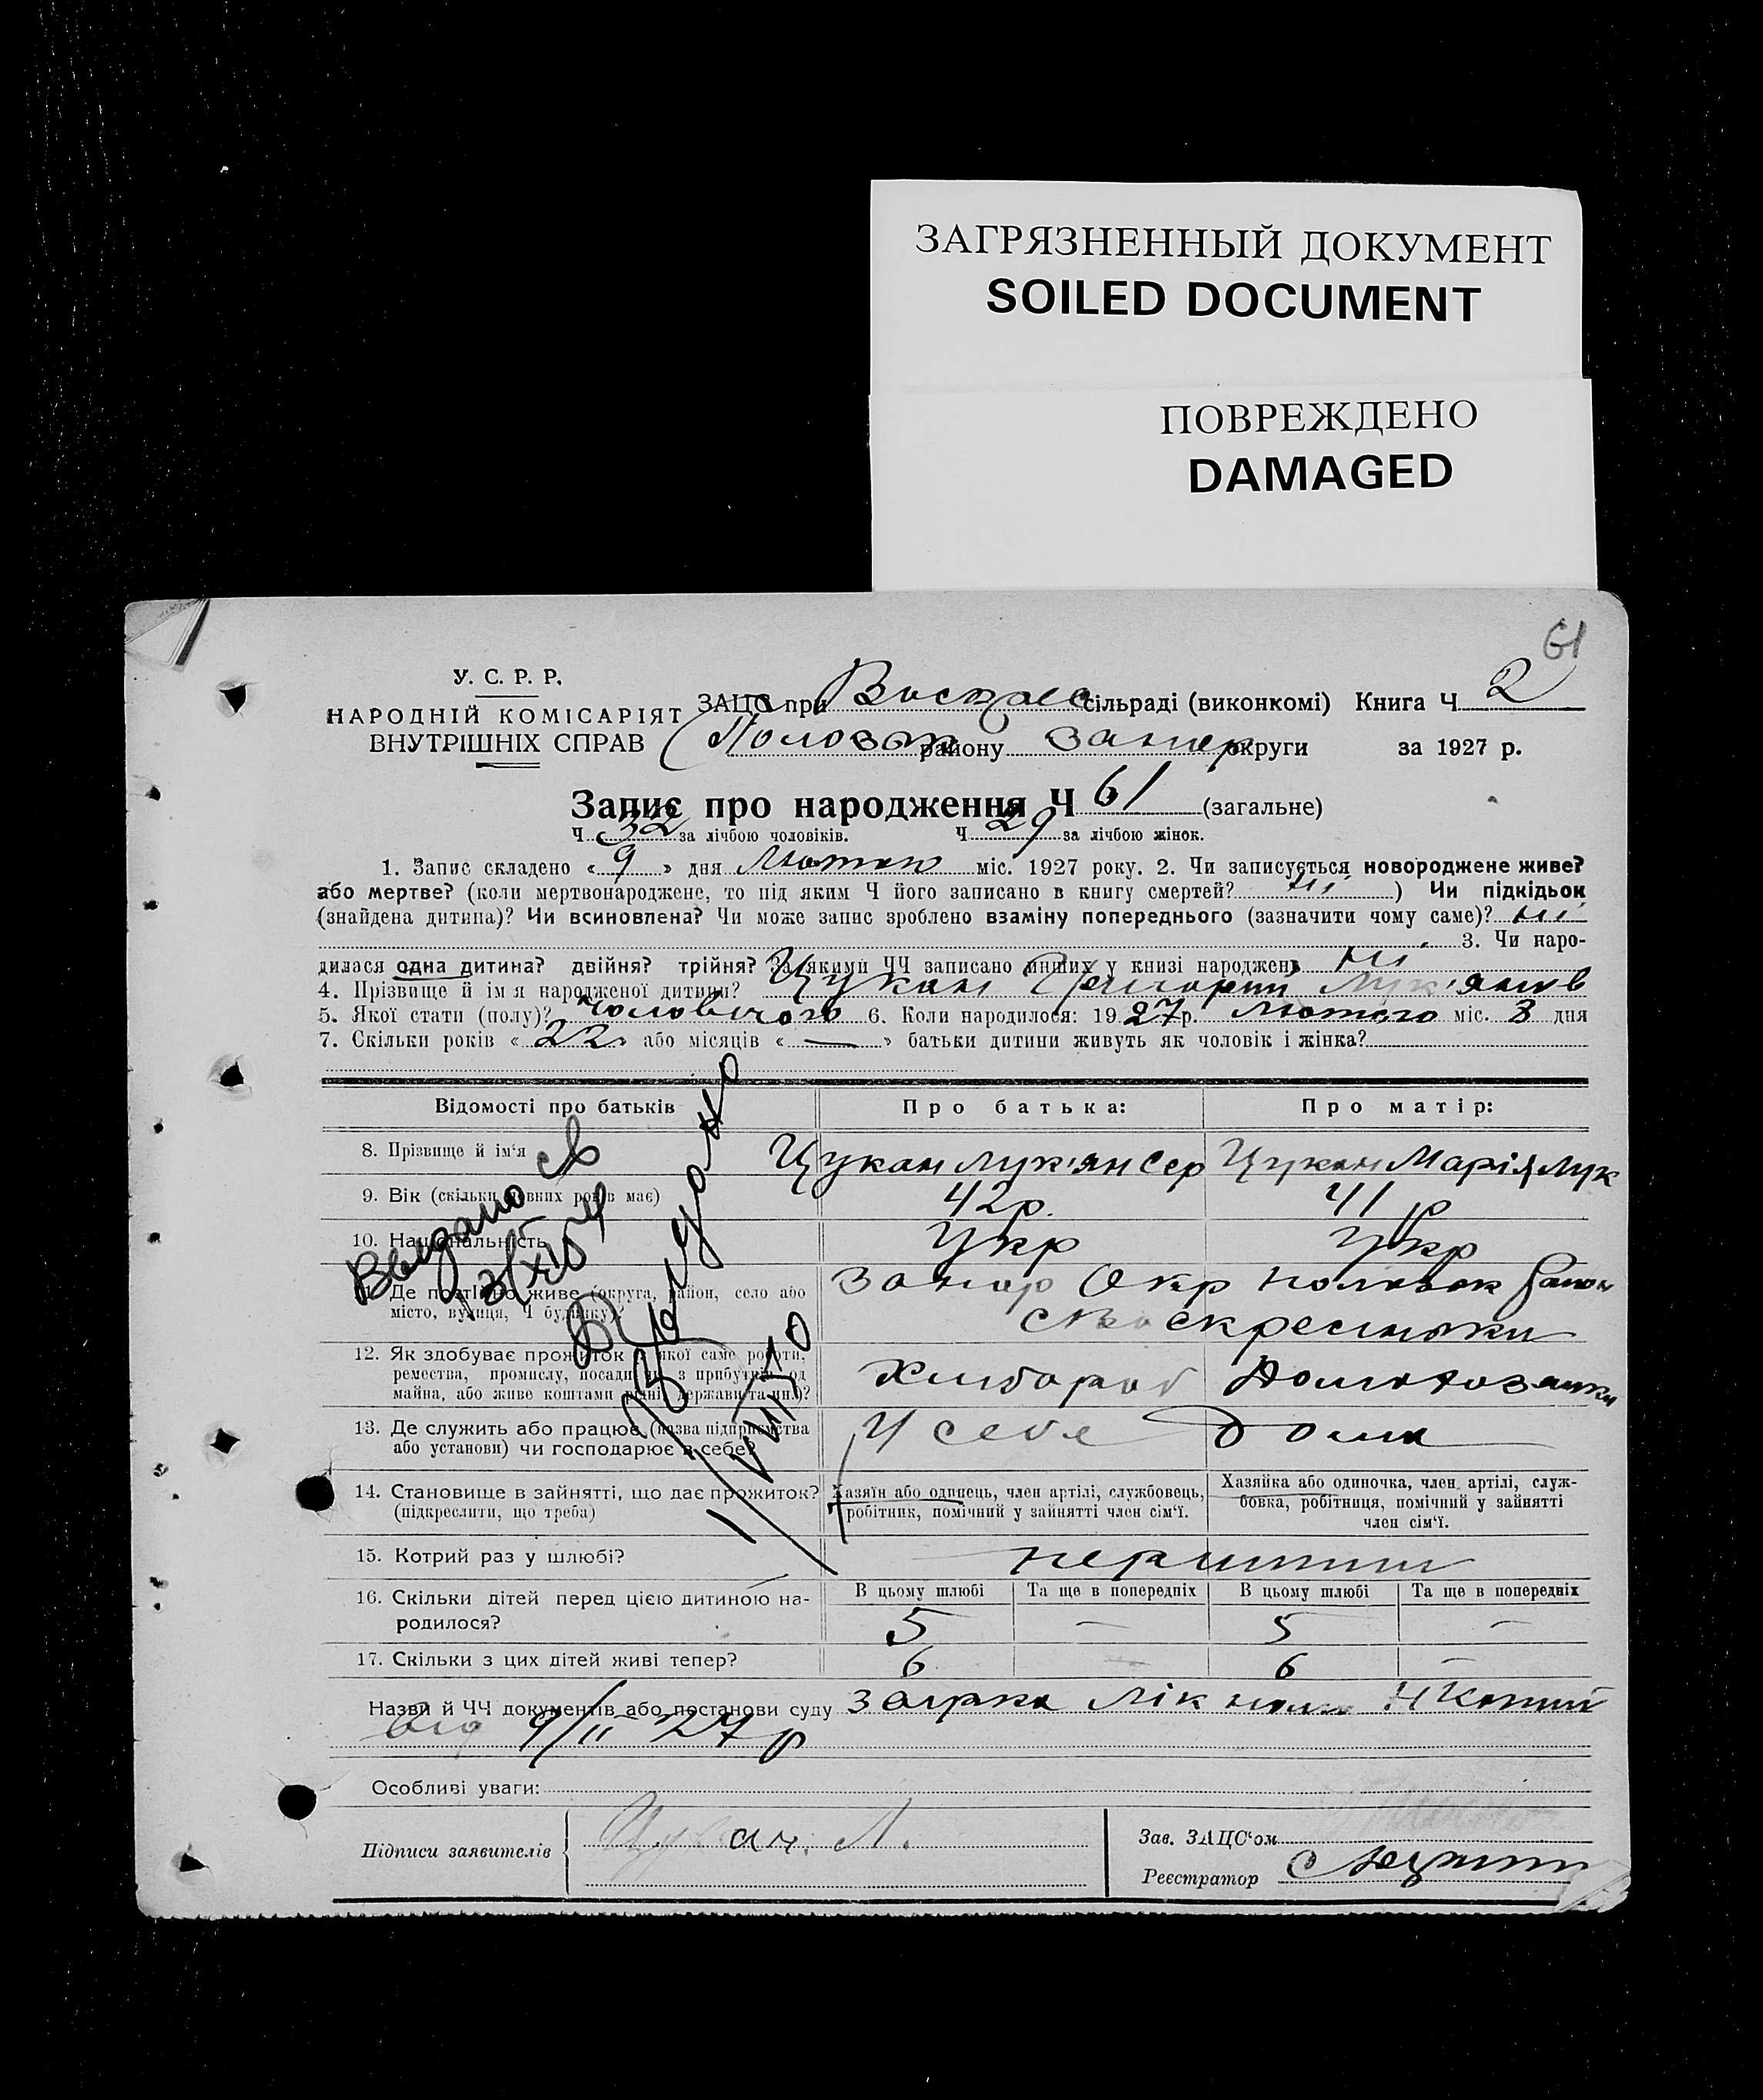 ЗАГРЯЗНЕННЫЙ ДОКУМЕНТ
SOILED DOCUMENT
ПОВРЕЖДЕНО
DAMAGED
61
У. С. Р. Р.
НАРОДНІЙ КОМІСАРІЯТ
ВНУТРІШНІХ СПРАВ
ЗАЦС при сільраді (виконкомі) Книга Ч 2
району Запор округи за 1927 р.
Запис про народження Ч 61 (загальне)
Ч 32 за лічбою чоловіків. Ч 29 за лічбою жінок.
1. Запис складено « 9 » дня Лютого міс. 1927 року. 2. Чи записується новороджене живе?
або мертве? (коли мертвонароджене, то під яким Ч його записано в книгу смертей? ні ) Чи підкідьок
(знайдена дитина)? Чи всиновлена? Чи може запис зроблено взаміну попереднього (зазначити чому саме)? ні
3. Чи наро-
дилася одна дитина? двійня? трійня? За якими ЧЧ записано инших у книзі народжень ні
4. Прізвище й ім'я народженої дитини? Цукан Григорий Лук'янов
5. Якої стати (полу)? чоловічого 6. Коли народилося: 1927 р. Лютого міс. 3 дня
7. Скільки років « 22 » або місяців « — » батьки дитини живуть як чоловік і жінка?
Відомості про батьків Про батька: Про матір:
8. Прізвище й ім'я Цукан Лук'ян Сер Цукан Марія Лук
9. Вік (скільки повних років має) 42 р. 41 р
10. Національність Укр Укр
11. Де постійно живе (округа, район, село або
місто, вулиця, Ч будинку)? Запор Окр район
12. Як здобуває прожиток з якої саме роботи,
ремества, промислу, посади чи з прибутків од
майна, або живе коштами рідні, держави та ин.)? Хлібороб
13. Де служить або працює (назва підприємства
або установи) чи господарює в себе? У себе дома
14. Становище в зайнятті, що дає прожиток?
(підкреслити, що треба)
Хазяїн або одинець, член артілі, службовець,
робітник, помічний у зайнятті член сім'ї.
Хазяйка або одиночка, член артілі, служ-
бовка, робітниця, помічний у зайнятті
член сім'ї.
15. Котрий раз у шлюбі?
16. Скільки дітей перед цією дитиною на-
родилося?
В цьому шлюбі Та ще в попередніх В цьому шлюбі Та ще в попередніх
5 — 5 —
17. Скільки з цих дітей живі тепер? 6 — 6 —
Назви й ЧЧ документів або постанови суду
від 9/II 27 р
Особливі уваги:
Підписи заявителів Цукан. Л.
Зав. ЗАЦС'ом
Реєстратор
Выдано св